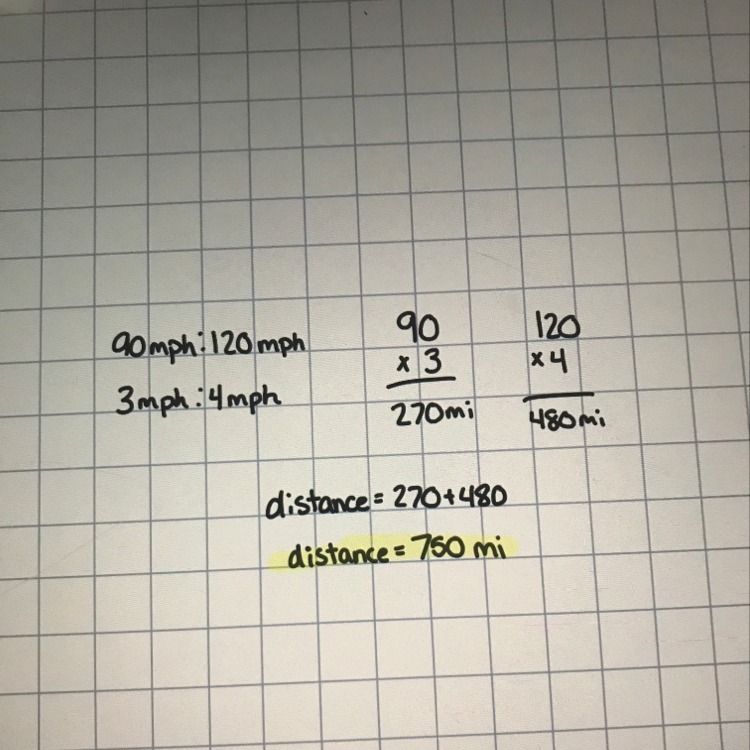 90mph:120mph
3mph:4mph
90
x 3
270mi
120
x 4
480mi
distance = 270+480
distance = 750 mi